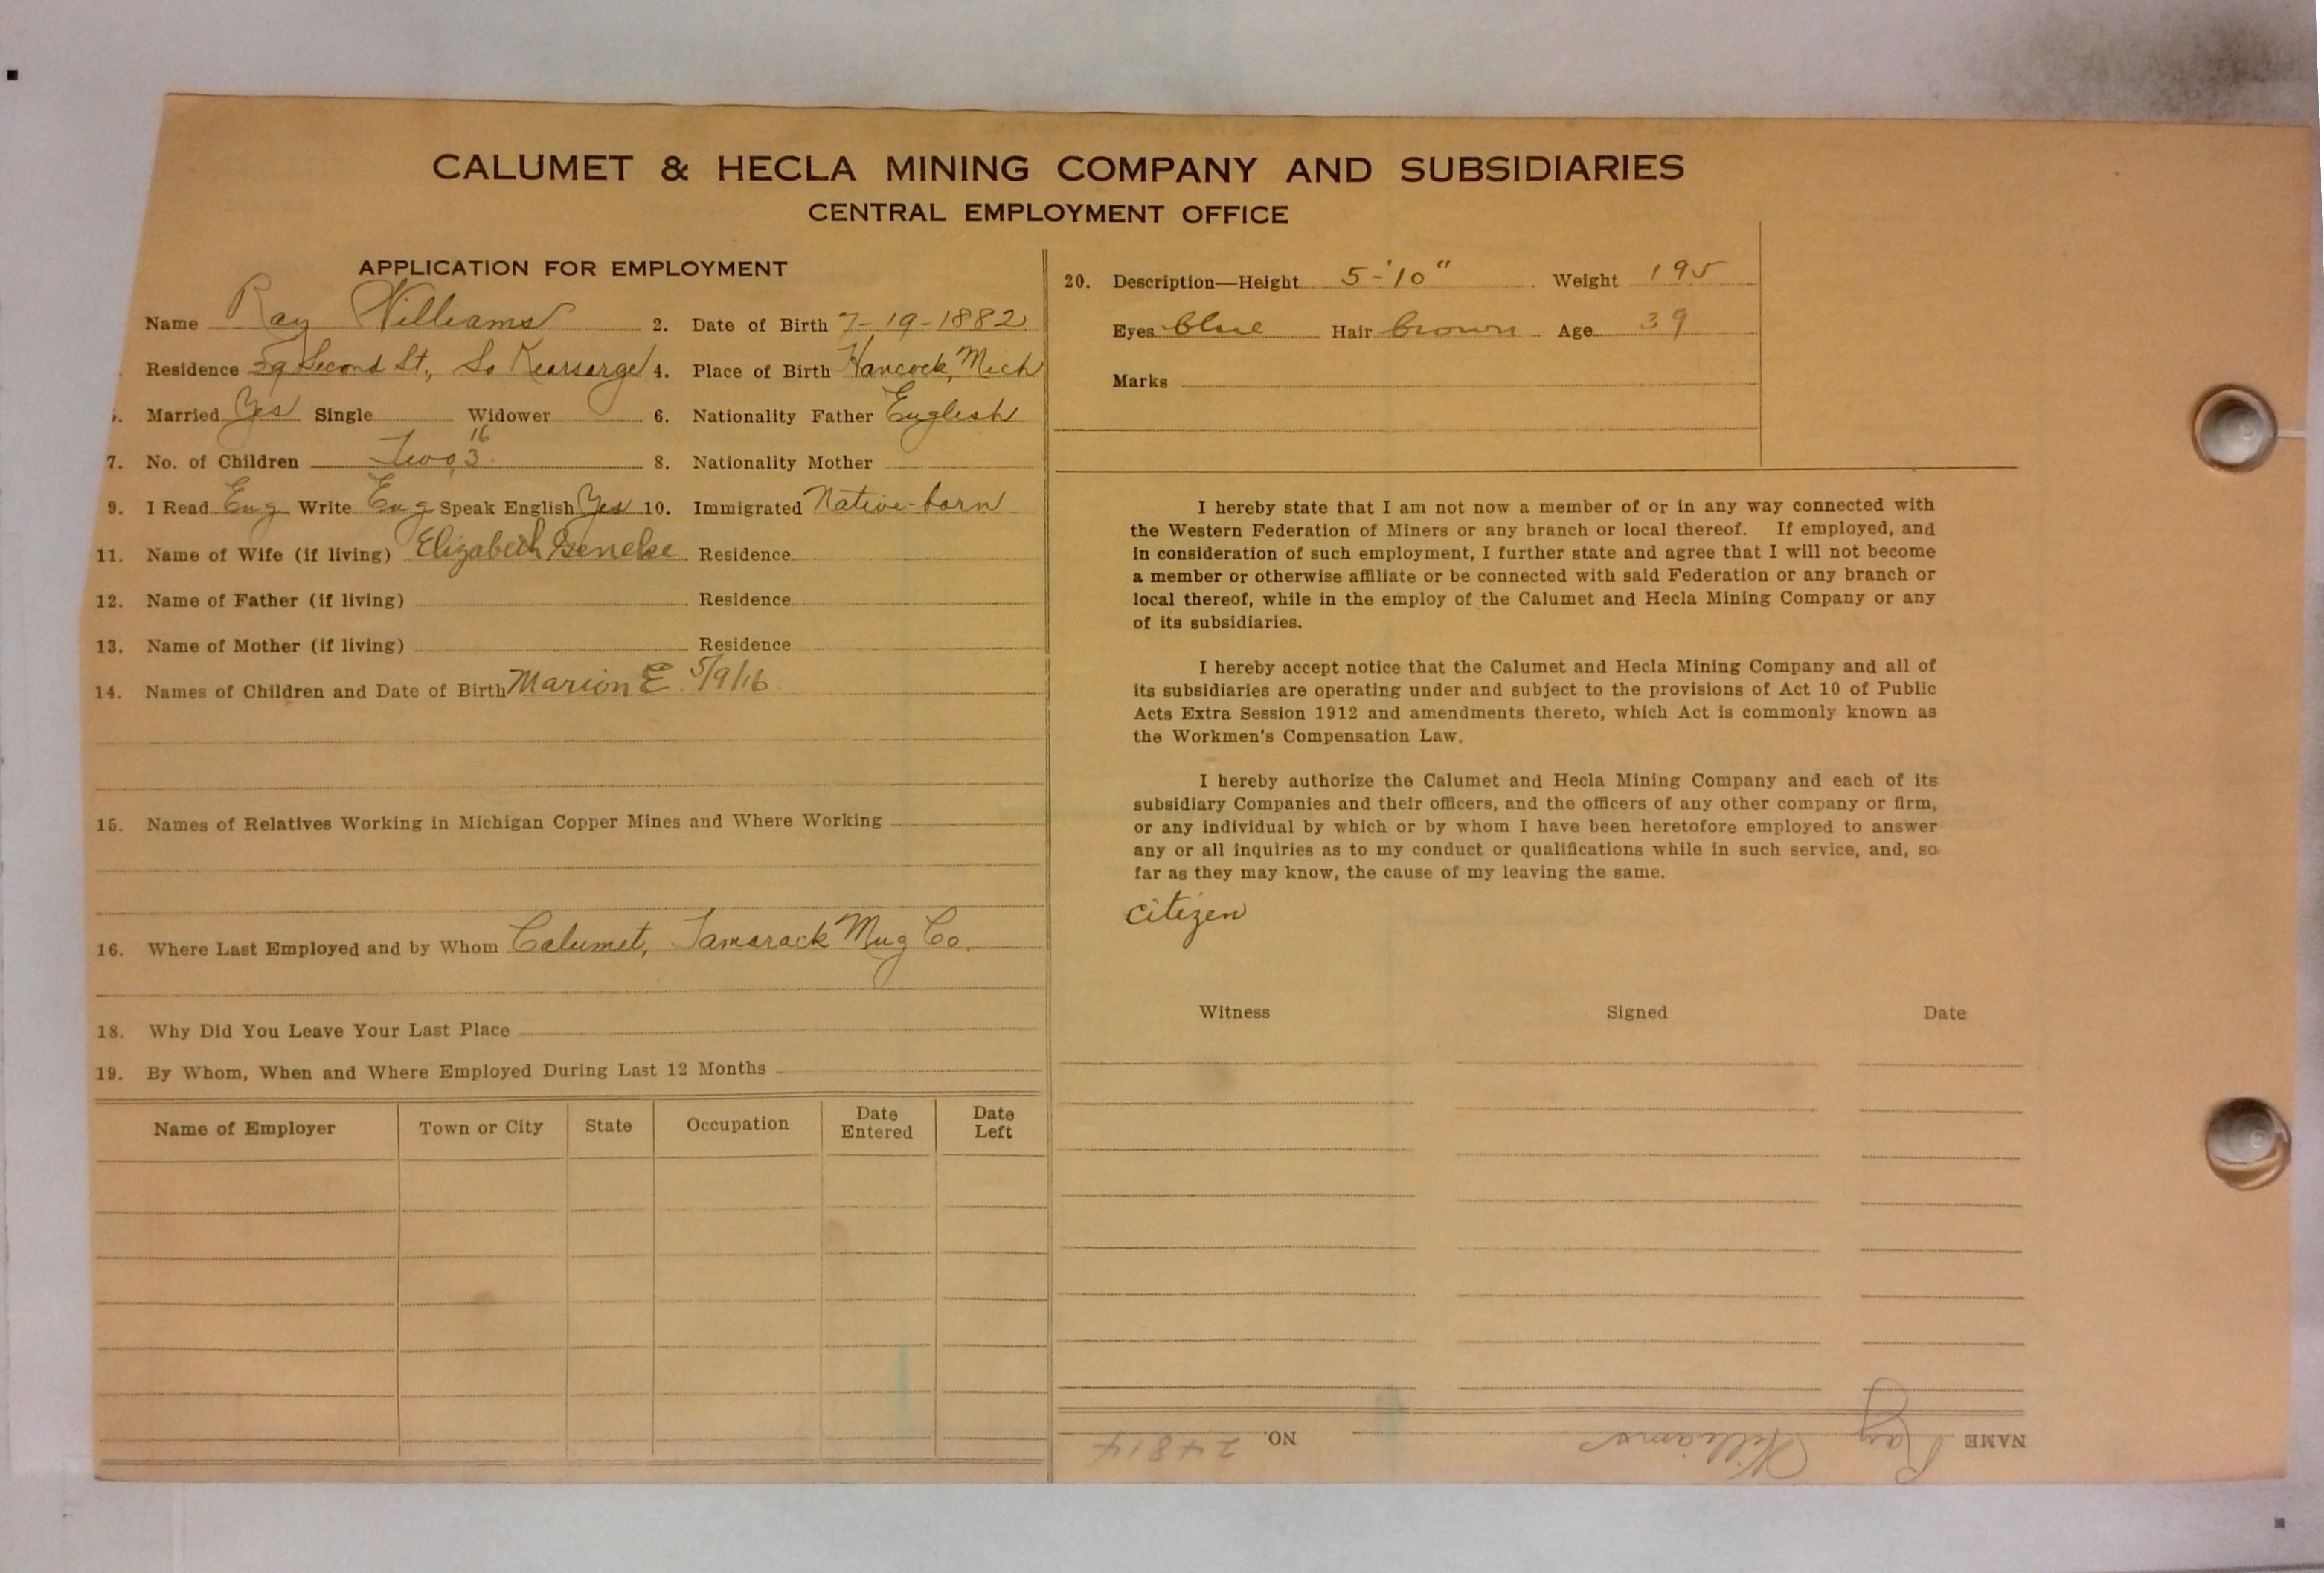 CALUMET & HECLA MINING COMPANY AND SUBSIDIARIES
CENTRAL EMPLOYMENT OFFICE
APPLICATION FOR EMPLOYMENT
Name Ray Williams 2. Date of Birth 7-19-1882
Residence Second St, So Kearsarge 4. Place of Birth Hancock, Mich
5. Married Yes Single Widower 6. Nationality Father English
16
7. No. of Children Two, 3 8. Nationality Mother
9. I Read Eng Write Eng Speak English Yes 10. Immigrated Native-born
11. Name of Wife (if living) Elizabeth Residence
12. Name of Father (if living) Residence
13. Name of Mother (if living) Residence
14. Names of Children and Date of Birth Marion E 5/9/16
15. Names of Relatives Working in Michigan Copper Mines and Where Working
16. Where Last Employed and by Whom Calumet, Tamarack Mng Co.
18. Why Did You Leave Your Last Place
19. By Whom, When and Where Employed During Last 12 Months
Name of Employer Town or City State Occupation Date Entered Date Left
20. Description—Height 5-'10" Weight 195
Eyes blue Hair brown Age 39
Marks
I hereby state that I am not now a member of or in any way connected with
the Western Federation of Miners or any branch or local thereof. If employed, and
in consideration of such employment, I further state and agree that I will not become
a member or otherwise affiliate or be connected with said Federation or any branch or
local thereof, while in the employ of the Calumet and Hecla Mining Company or any
of its subsidiaries.
I hereby accept notice that the Calumet and Hecla Mining Company and all of
its subsidiaries are operating under and subject to the provisions of Act 10 of Public
Acts Extra Session 1912 and amendments thereto, which Act is commonly known as
the Workmen's Compensation Law.
I hereby authorize the Calumet and Hecla Mining Company and each of its
subsidiary Companies and their officers, and the officers of any other company or firm,
or any individual by which or by whom I have been heretofore employed to answer
any or all inquiries as to my conduct or qualifications while in such service, and, so
far as they may know, the cause of my leaving the same.
citizen
Witness Signed Date
NAME Ray Williams NO. 24814